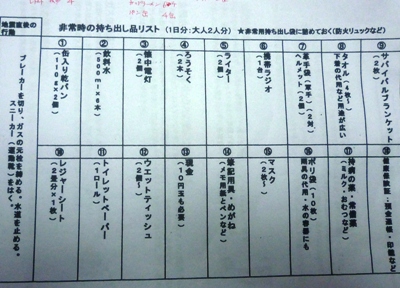 非常時の持ち出し品リスト (1日分:大人2人分) ★非常用持ち出し袋に詰めておく(防火リュックなど)
地震直後の行動
ブレーカーを切り、ガスの元栓を締める。水道を止める。
スニーカー(運動靴)をはく。
①缶入り乾パン
(110g×2個)
②飲料水
(500ml×6本)
③懐中電灯
(2個)
④ろうそく
(2本)
⑤ライター
(2個)
⑥携帯ラジオ
(1台)
⑦革手袋(軍手)(2対)
ヘルメット(2個)
⑧タオル(4枚~)
下着の代用など用途が広い
⑨サバイバルブランケット
(2枚)
⑩レジャーシート
(2畳分×1枚)
⑪トイレットペーパー
(1ロール)
⑫ウエットティッシュ
(2個~)
⑬現金
(10円玉も必要)
⑭筆記用具・めがね
(メモ用紙とペンなど)
⑮マスク
(2枚~)
⑯ポリ袋(10枚)
雨具の代用・水の容器にも
⑰持病の薬・常備薬
(ミルク、おむつなど)
⑱健康保険証・預金通帳・印鑑など